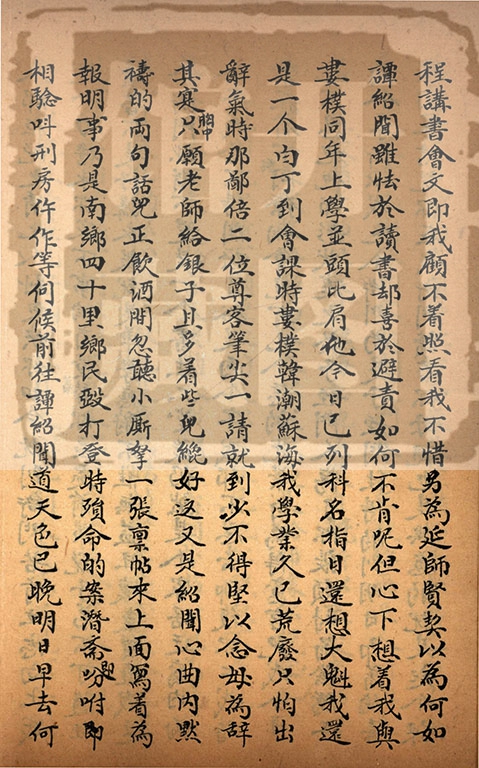 程講書會文即我顧不着照看我不惜另為延師賢契以為何如
譚紹聞雖怯於讀書却喜於避責如何不肯呢但心下想着我與
婁樸同年上學並頭比肩他今日已列科名指日還想大魁我還
是一个白丁到會課時婁樸韓潮蘇海我學業久已荒廢只怕出
辭氣時那鄙倍二位尊客筆尖一請就到少不得堅以念母為辭
其寔胸中只願老師給銀子且多着些兒纔好这又是紹聞心曲内默
禱的兩句話兒正飲酒間忽聽小厮拏一張禀帖來上面寫着為
報明事乃是南鄉四十里鄉民毆打登時殞命的案潛斎吩咐即
相騐呌刑房仵作等伺候前往譚紹聞道天色已晚明日早去何